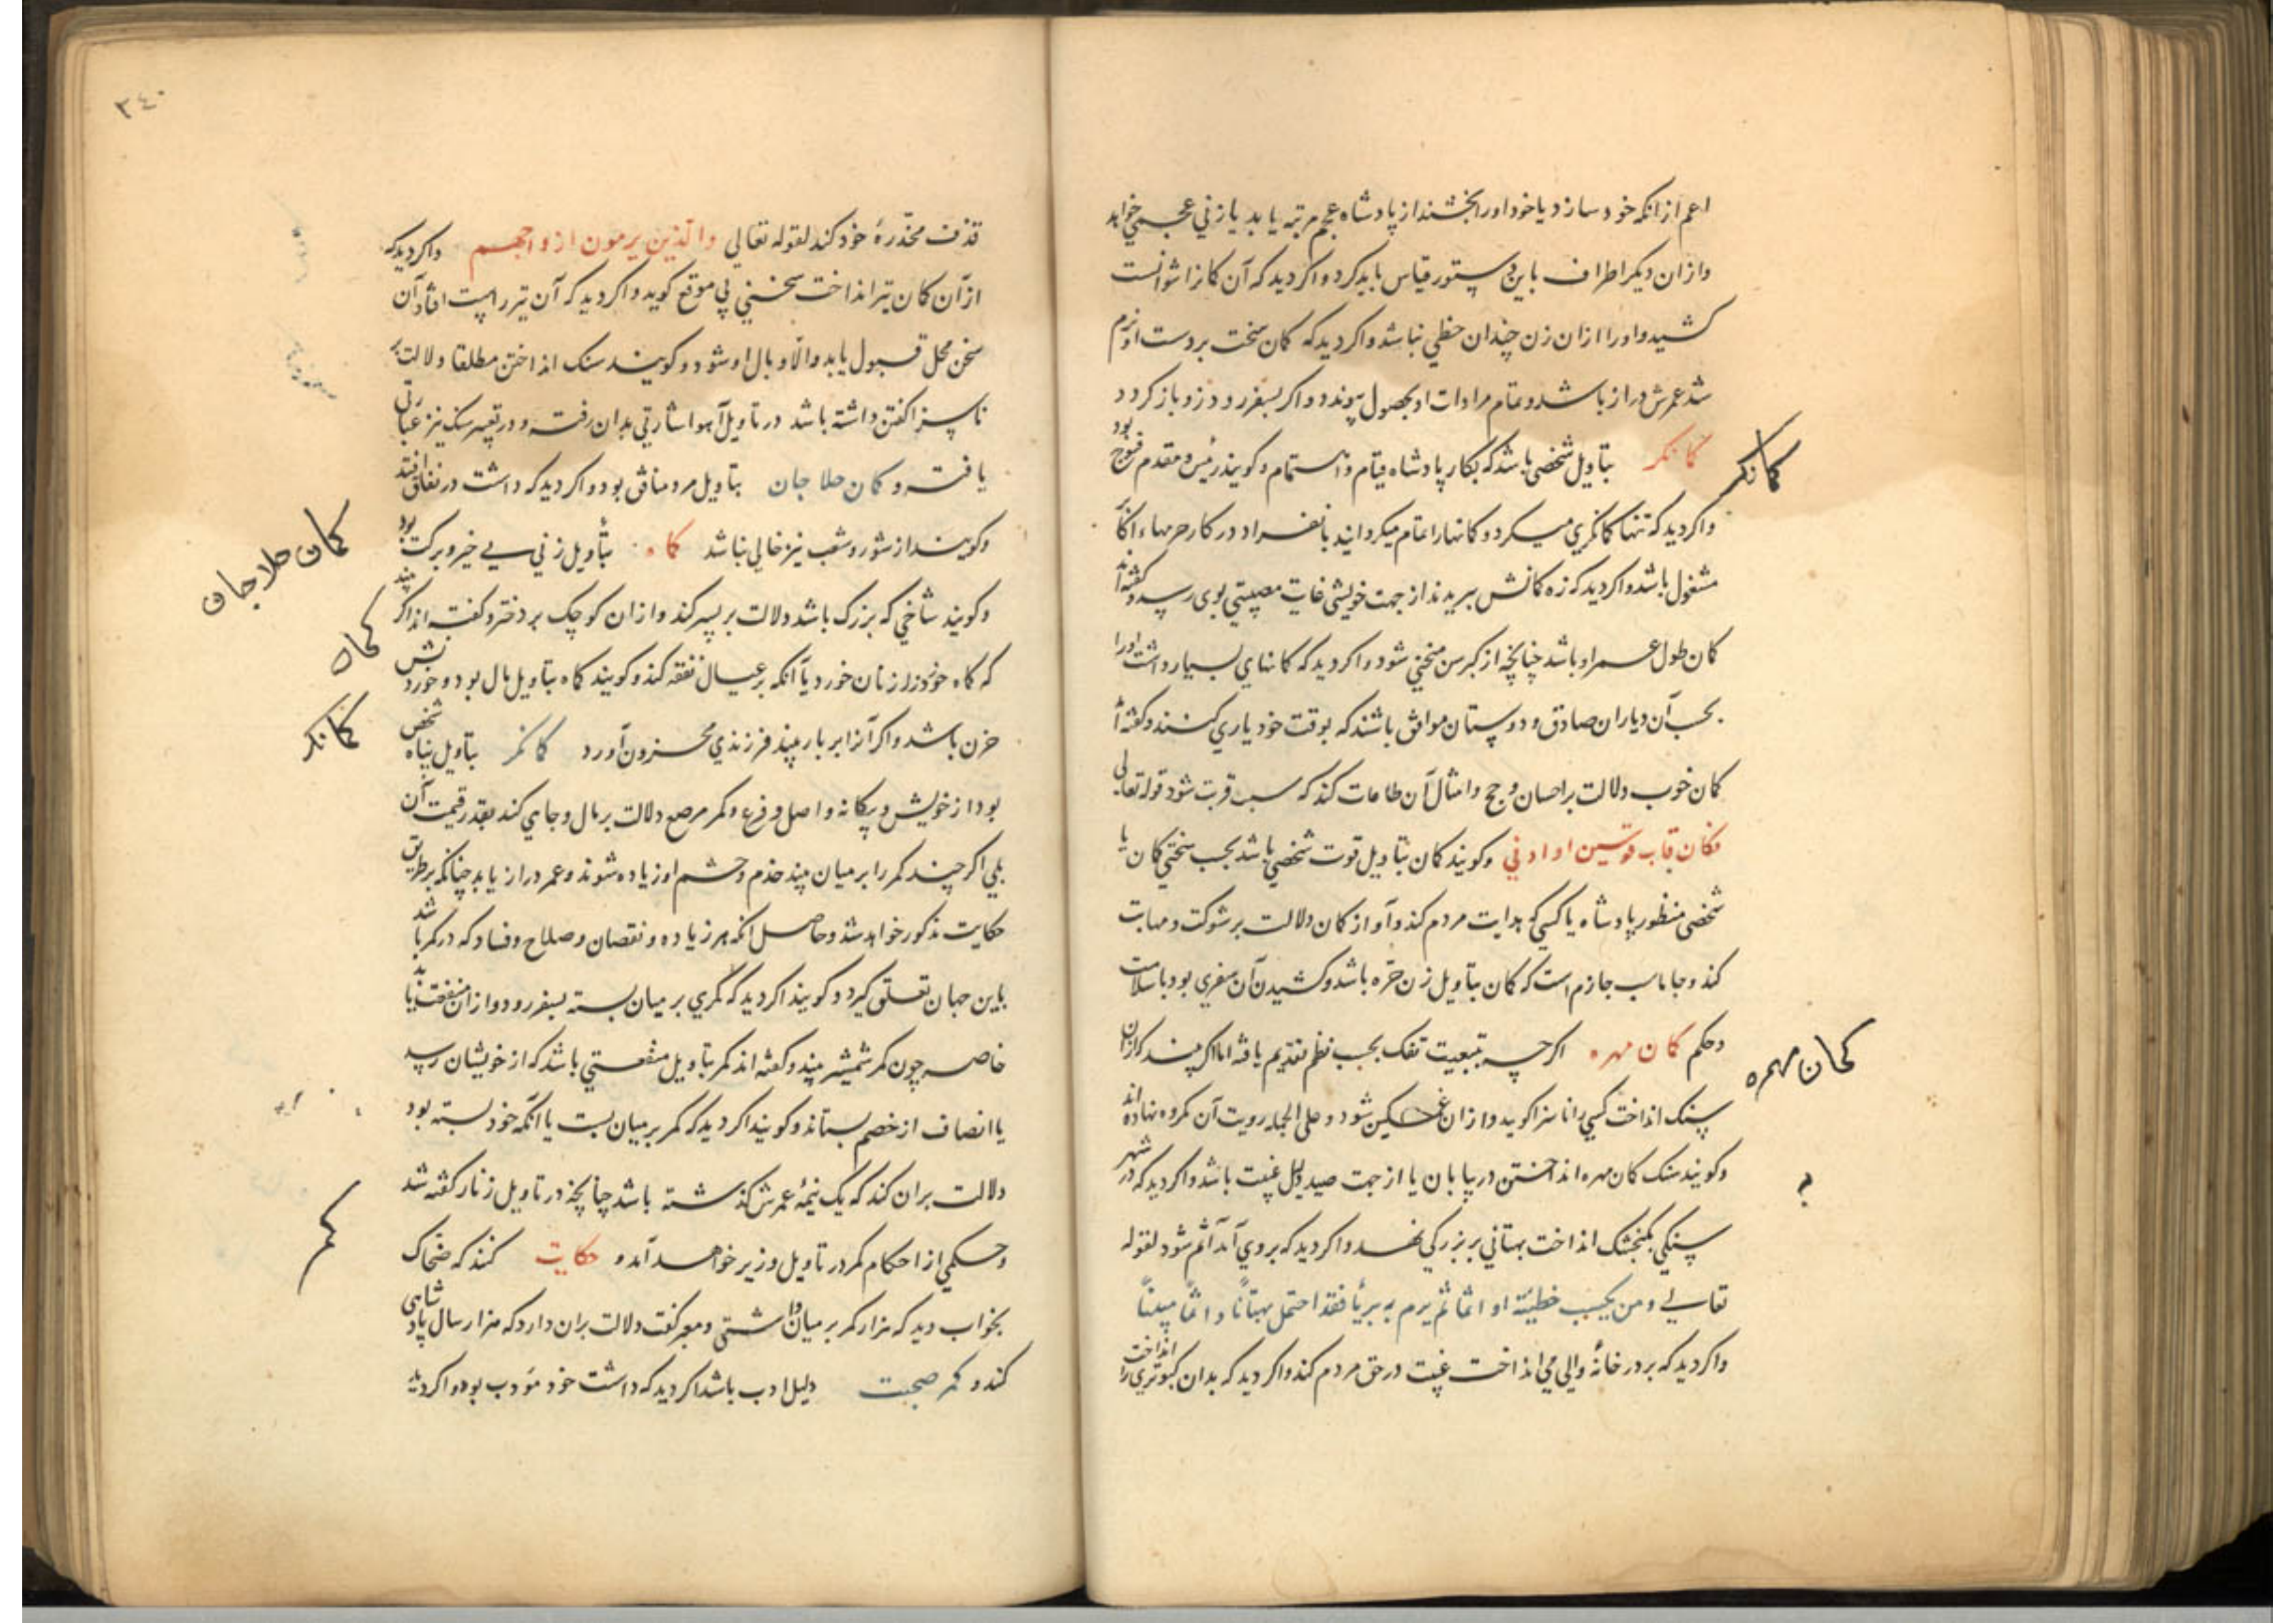 اعم از انکه خود سازد یا خود او را بخشند از پادشاه عجم مرتبه یابد یا زنی عجمی خواهد
و ازان دیکر اطراف باین دستور قیاس باید کرد و اکر دید که آن کمانرا نتوانست
کشید و او را ازان زن چندان حظی نباشد و اکر دید که کمان سخت بر دست او نرم
شد عمرش دراز باشد و تمام مرادات او بحصول پیوندد و اکر بسفر رود زود باز کردد
کمانکر بتاویل شخصی باشد که بکار پادشاه قیام و اهتمام و کویند رئیس و مقدم فوج بود
کمانکر
و اکر دید که تنها کمانکری میکرد و کمانها را تمام میکردانید بانفراد در کار حربها
مشغول باشد و اکر دید که زه کمانش ببریدند از جهت خویشی غایت مصیبتی بوی رسد و کفته‌اند
کمان طول عمر او باشد چنانچه از کبر سن منحنی شود و اکر دید که کمانهای بسیار داشت او را
بحسب آن یاران صادق و دوستان موافق باشند که بوقت خود یاری کنند و کفته‌اند
کمان خوب دلالت بر احسان و حج و امثال آن طاعات کند که سبب قربت شود قوله تعالی
فکان قاب قوسین او ادنی و کویند کمان بتاویل قوت شخصی باشد بحسب سختی کمان یا
شخصی منظور پادشاه یا کسی که هدایت مردم کند و آواز کمان دلالت بر شوکت و مهابت
کند و جاماسب جازم است که کمان بتاویل زن حره باشد و کشیدن آن سفری بود با سلامت
و حکم کمان مهره اکرچه بتبعیت تفک بحسب نظم تقدیم یافته اما اکر بیند که ازان
کمان مهره
سنک انداخت کسی را ناسزا کوید و ازان غمکین شود و علی الجمله رویت آن مکروه نهاده‌اند
و کویند سنک کمان مهره انداختن در بیابان یا از جهت صید دلیل غیبت باشد و اکر دید که در شهر
؟
سنکی بکنجشک انداخت بهتانی بر بزرکی نهد و اکر دید که بر وی آمد آثم شود لقوله
تعالی و من یکسب خطیئة او اثما ثم یرم به بریئا فقد احتمل بهتانا و اثما مبینا
و اکر دید که بر در خانهٔ والی می انداخت غیبت در حق مردم کند و اکر دید که بدان کبوتری را انداخت
٣٤٠
قذف مخدرهٔ خود کند لقوله تعالی والذین یرمون ازواجهم و اکر دید که
از آن کمان تیر انداخت سخنی بی موقع کوید و اکر دید که آن تیر راست افتاد آن
سخن محل قبول یابد و الا وبال او شود و کویند سنک انداختن مطلقا دلالت بر
ناسزا کفتن داشته باشد در تاویل آهو اشارتی بدان رفت و در تعبیر سنک نیز عبارتی
یافت و کمان حلاجان بتاویل مرد منافق بود و اکر دید که داشت در نفاق افتد
کمان حلاجان
و کویند از شور و شعب نیز خالی نباشد کماه بتاویل زنی بی خیر و برکت بود
کماه
و کویند شاخی که بزرک باشد دلالت بر پسر کند و ازان کوچک بر دختر و کفته‌اند اکر بیند
که کماه خود زنان خورد یا آنکه بر عیال نفقه کند و کویند کماه بتاویل مال بود و خوردنش
حزن باشد و اکر آنرا بر بار بیند فرزندی محزون آورد کمانکر بتاویل پناه شخص
کمانکر
بود از خویش و بیکانه و اصل و فرع و کمر مرصع دلالت بر مال و جاهی کند بقدر قیمت آن
بلی اکر چند کمر را بر میان بیند خدم و حشم او زیاده شوند و عمر دراز یابد چنانکه بر طریق
حکایت مذکور خواهد شد و حاصل انکه هر زیاده و نقصان و صلاح و فساد که در کمر باشد
باین جهان تعلق کیرد و کویند اکر دید که کمری بر میان بسته بسفر رود و ازان منفعت یابد
خاصه چون کمر شمشیر بیند و کفته‌اند کمر بتاویل منفعتی باشد که از خویشان رسد
یا انصاف از خصم بستاند و کویند اکر دید که کمر بر میان بست یا آنکه خود بسته بود
دلالت بران کند که یک نیمهٔ عمرش کذشته باشد چنانچه در تاویل زنار کفته شد
کمر
و حکمی از احکام کمر در تاویل وزیر خواهد آمد و حکایت کنند که ضحاک
بخواب دید که هزار کمر بر میان داشتی و معبر کفت دلالت بران دارد که هزار سال پادشاهی
کند و کمر صحبت دلیل ادب باشد اکر دید که داشت خود مؤدب بود و اکر دید